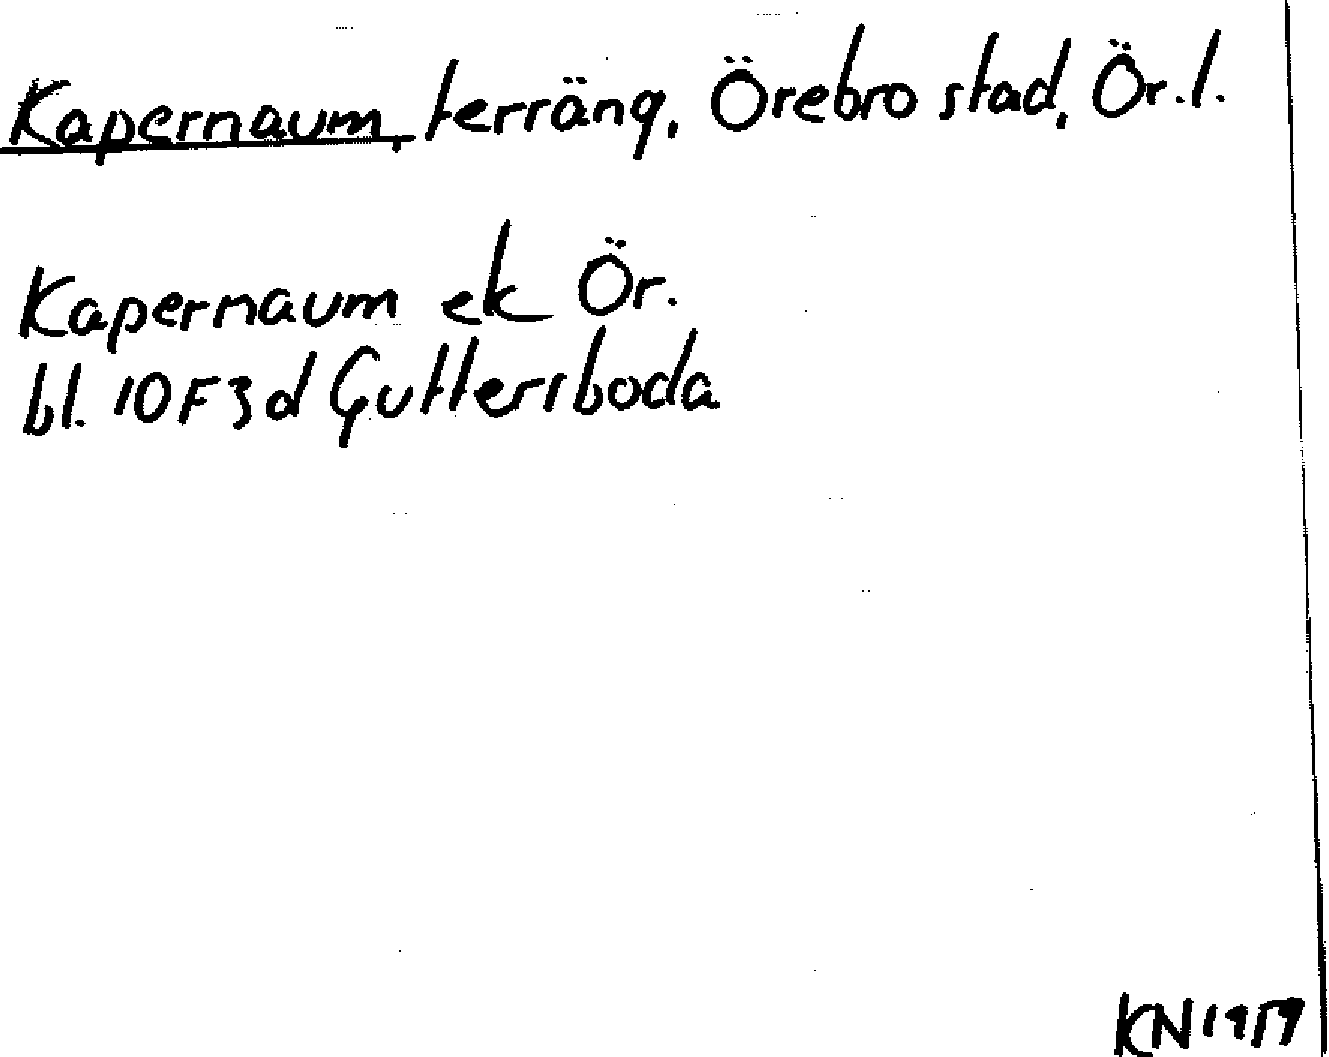 Kapernaum, terräng, Örebro stad, Ör.l.
Kapernaum ek Ör.
bl. 10F3d Guttersboda
KN1959